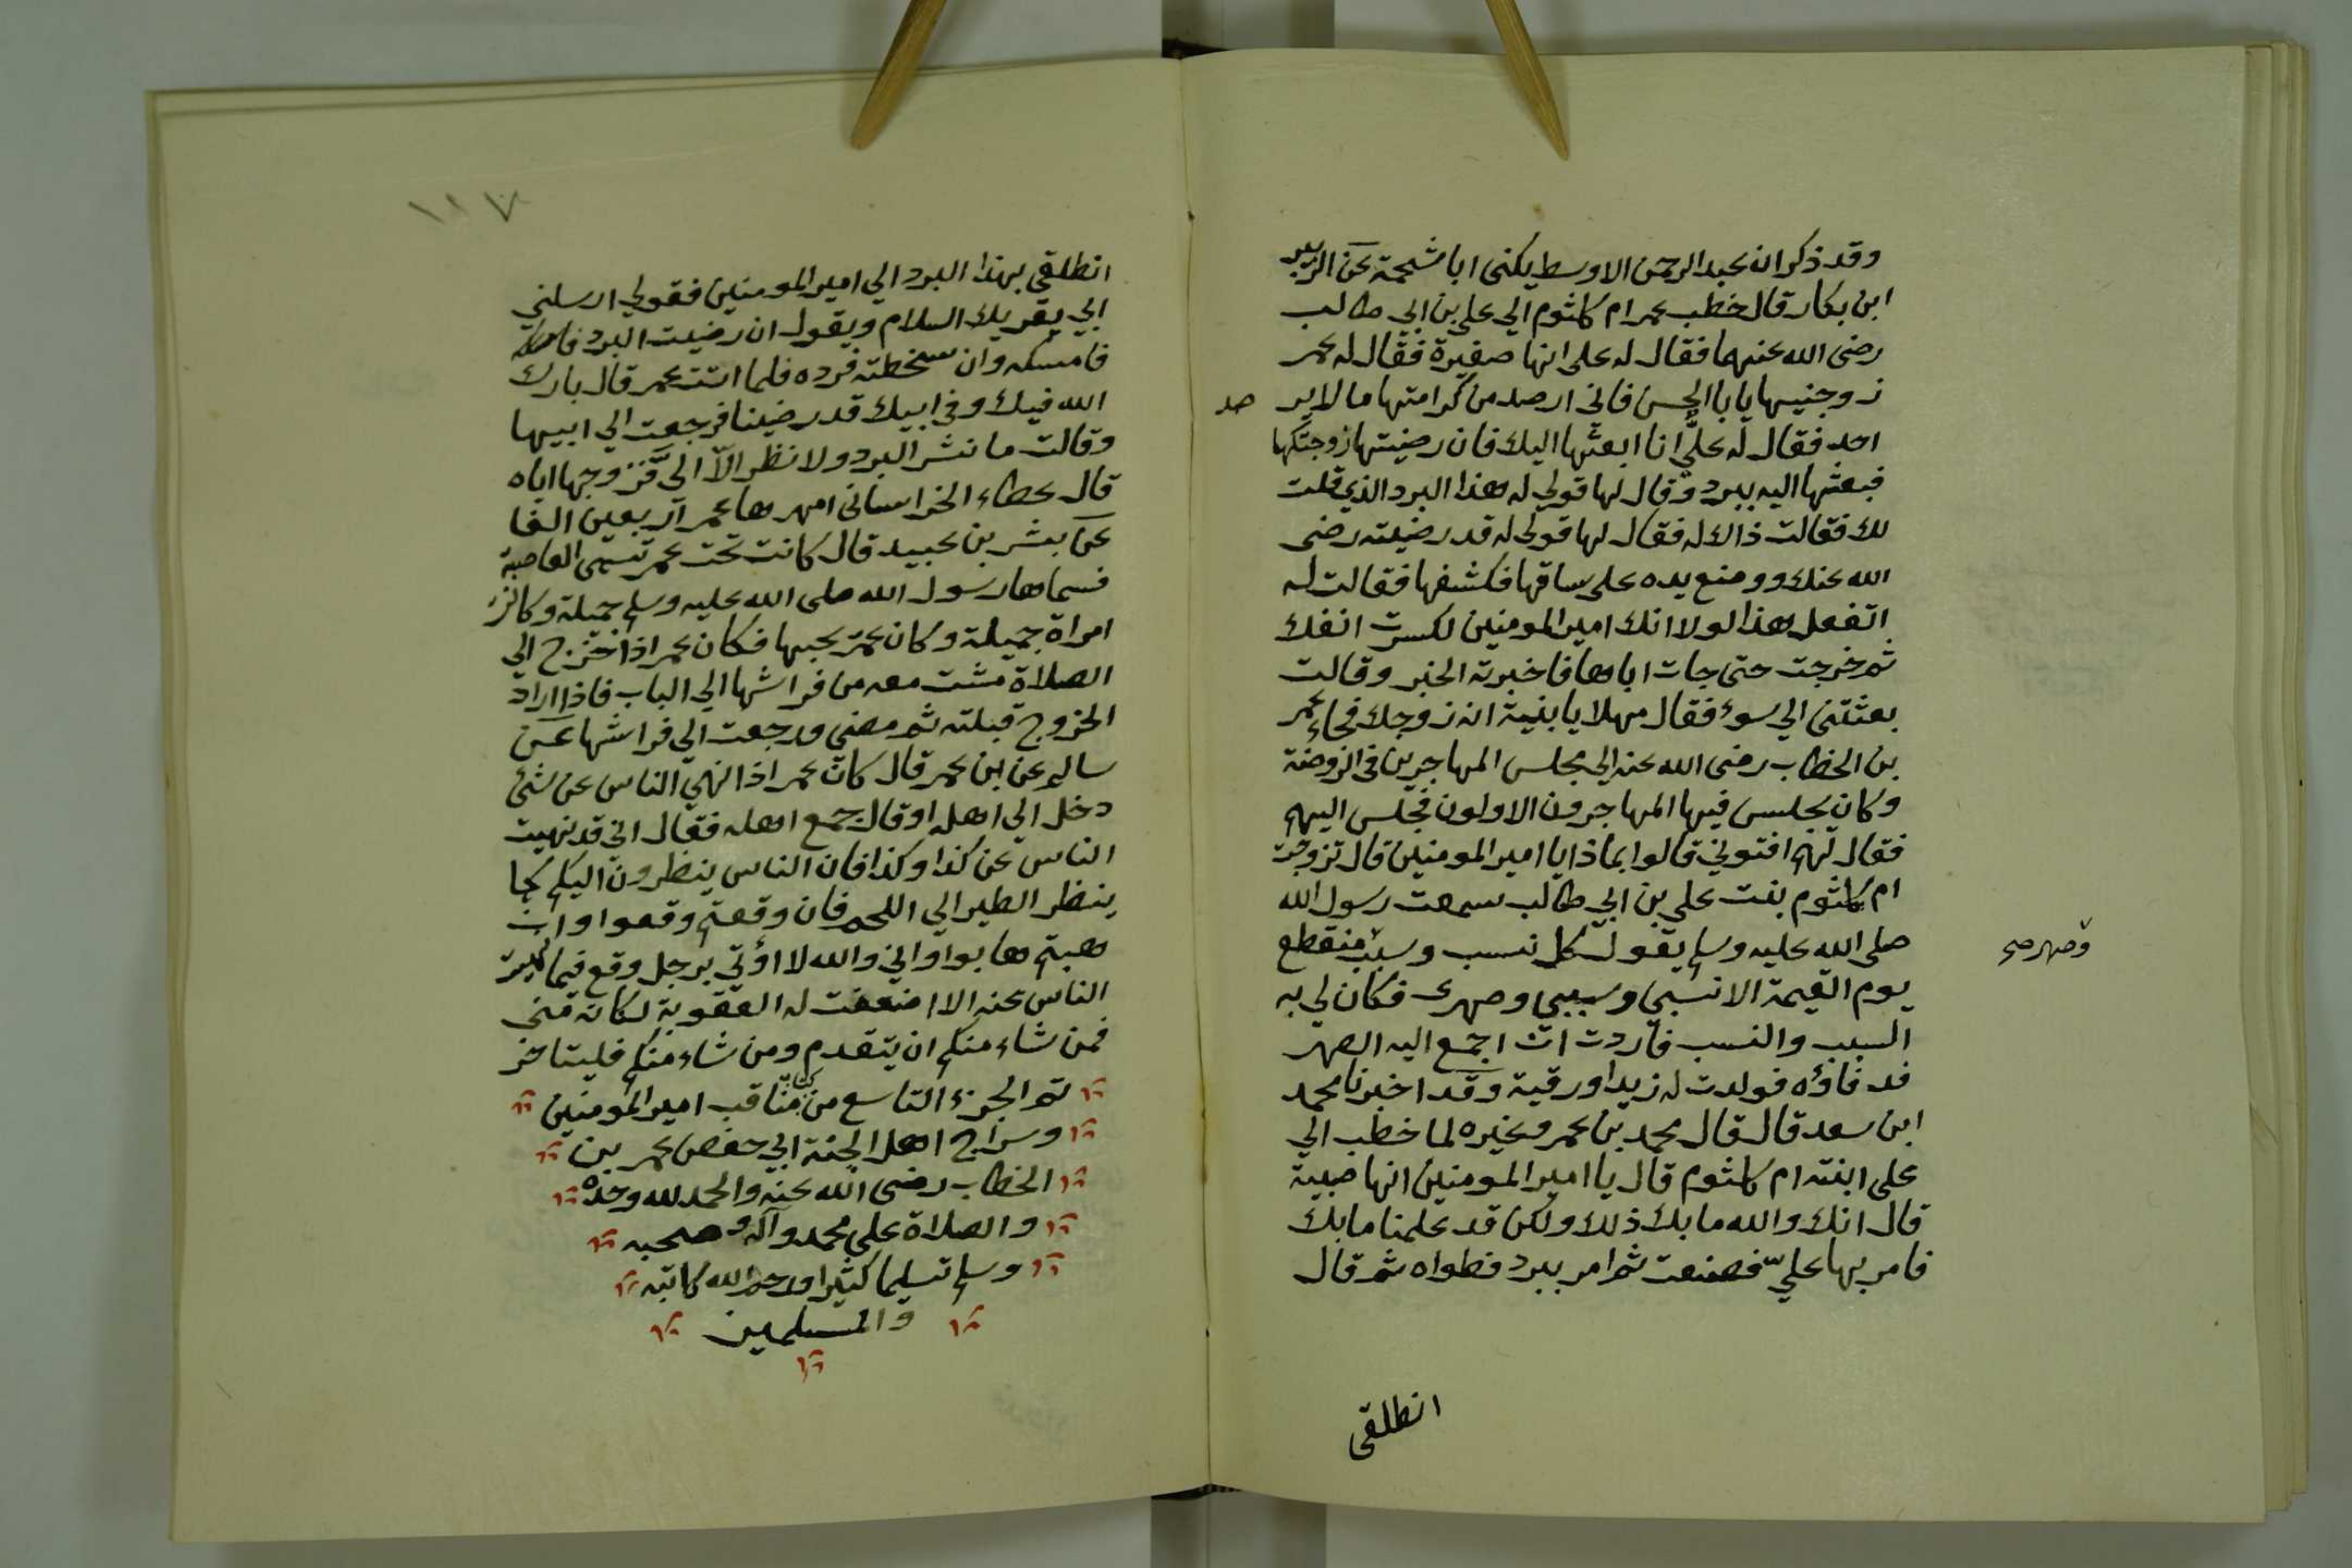 وقد ذكر ان عبد الرحمن الاوسط يكنى ابا شحمة عن الزبير
ابن بكار قال خطب عمر ام كلثوم الي علي بن ابي طالب
رضى الله عنهما فقال له على انها صغيرة فقال له عمر
زوجنيها يا با الحسن فاني ارصد من كرامتها ما لا ير صد
احد فقال له عليّ انا ابعثها اليك فان رضيتها زوجتكها
فبعثها اليه ببرد وقال لها قولي له هذا البرد الذي قلت
لك فقالت ذالك له فقال لها قولى له قد رضيته رضى
الله عنك ووضع يده على ساقها فكشفها فقالت له
اتفعل هذا لولا انك امير المومنين لكسرت انفك
ثم خرجت حتى جات اباها فاخبرته الخبر وقالت
بعثتنى الي سوء فقال مهلا يا بنية انه زوجك فجاء عمر
بن الخطاب رضى الله عنه الي مجلس المهاجرين فى الروضة
وكان يجلس فيها المهاجرون الاولون فجلس اليهم
فقال لهم افتوني قالوا بماذا يا امير المومنين قال تزوجت
ام كلثوم بنت علي بن ابي طالب سمعت رسول الله
صلى الله عليه وسلم يقول كل نسب وسبب منقطع
وصهر صح
يوم القيمة الا نسبي وسببي وصهرى فكان لي به
السبب والنسب فاردت ان اجمع اليه الصهر
فد فاؤه فولدت له زيدا ورقية وقد اخبرنا محمد
ابن سعد قال قال محمد بن عمر وغيره لما خطب الي
على ابنته ام كلثوم قال يا امير المومنين انها صبية
قال انك والله ما بك ذلك ولكن قد علمنا ما بك
فامر بها عليّ فصنعت ثم امر ببرد فطواه ثم قال
انطلقى
١١٧
انطلقي بهذا البرد الي امير المومنين فقولي ارسلني
ابي يقريك السلام ويقول ان رضيت البرد
فامسكه وان سخطته فرده فلما اتت عمر قال بارك
الله فيك وفى ابيك قد رضينا فرجعت الي ابيها
وقالت ما نشر البرد ولا نظر الّا الىّ فزوجها اياه
قال عطاء الخراسانى امهرها عمر اربعين الفا
عن بشر بن عبيد قال كانت تحت عمر تسمى العاصية
فسماها رسول الله صلى الله عليه وسلم جميلة وكانت
امراة جميلة وكان عمر يحبها فكان عمر اذا خرج الي
الصلاة مشت معه من فراشها الي الباب فاذا اراد
الخروج قبلته ثم مضى ورجعت الي فراشها عن
سالم عن بن عمر قال كان عمر اذا نهي الناس عن شئ
دخل الي اهله او قال جمع اهله فقال اني قد نهيت
الناس عن كذا وكذا فان الناس ينظرون اليكم كما
ينظر الطير الي اللحم فان وقعتم وقعوا وان
هبتم هابوا واني والله لا اؤتي برجل وقع فيما نهيت
الناس عنه الا اضعفت له العقوبة لمكانه منى
فمن شاء منكم ان يتقدم ومن شاء منكم فليتاخر
تم الجزء التاسع من كتاب مناقب امير المومنين
وسراج اهل الجنة ابي حفص عمر بن
الخطاب رضى الله عنه والحمد لله وحده
والصلاة علي محمد وآله وصحبه
وسلم تسليما كثيرا ورحم الله كاتبه
والمسلمين